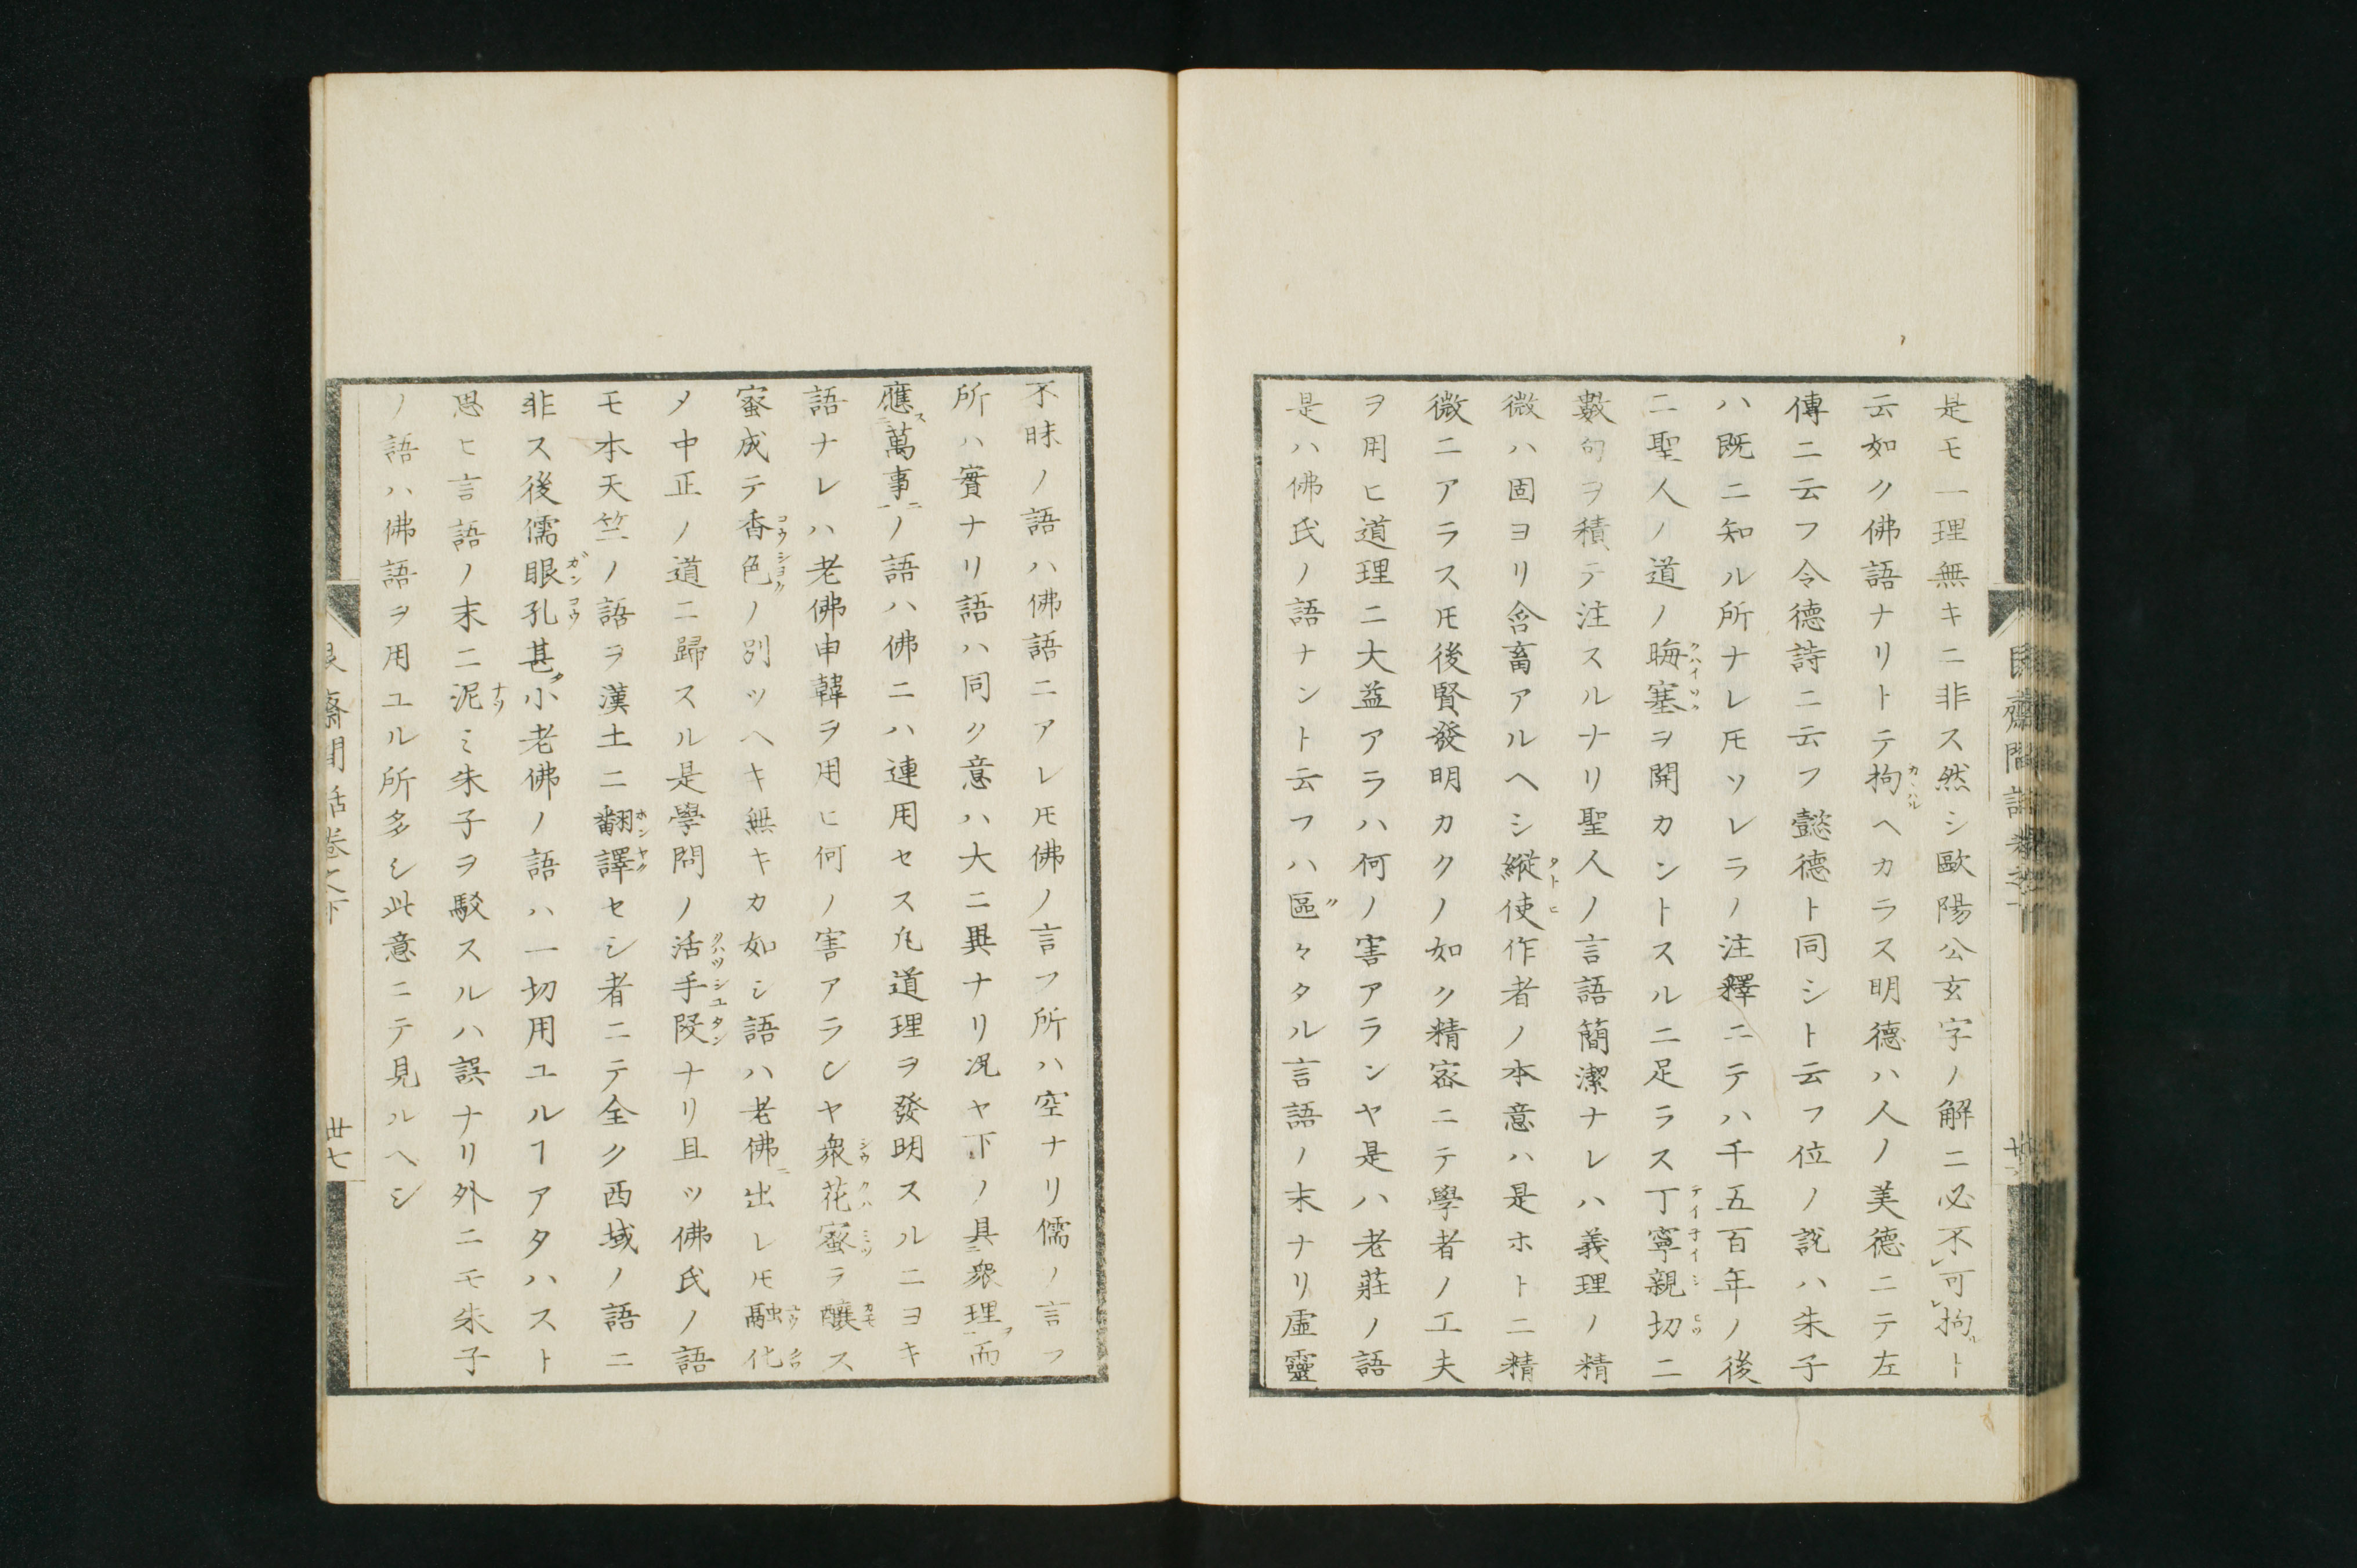 是モ一理無キニ非ス然シ歐陽公玄字ノ解ニ必不可拘ト
云如ク佛語ナリトテ拘ヘカラス明德ハ人ノ美德ニテ左
傳ニ云フ令德詩ニ云フ懿德ト同シト云フ位ノ說ハ朱子
ハ既ニ知ル所ナレ𪜈ソレラノ注釋ニテハ千五百年ノ後
ニ聖人ノ道ノ晦塞ヲ開カントスルニ足ラス丁寧親切ニ
數句ヲ積テ注スルナリ聖人ノ言語簡潔ナレハ義理ノ精
微ハ固ヨリ含畜アルヘシ縱使作者ノ本意ハ是ホトニ精
微ニアラス𪜈後賢發明カクノ如ク精密ニテ學者ノ工夫
ヲ用ヒ道理ニ大益アラハ何ノ害アランヤ是ハ老莊ノ語
是ハ佛氏ノ語ナント云フハ區々タル言語ノ末ナリ虛靈
不昧ノ語ハ佛語ニアレ𪜈佛ノ言フ所ハ空ナリ儒ノ言フ
所ハ實ナリ語ハ同ク意ハ大ニ異ナリ况ヤ下ノ具衆理而
應萬事ノ語ハ佛ニハ連用セス凡道理ヲ發明スルニヨキ
語ナレハ老佛申韓ヲ用ヒ何ノ害アランヤ衆花蜜ヲ釀ス
蜜成テ香色ノ別ツヘキ無キカ如シ語ハ老佛ニ出レ𪜈融化
メ中正ノ道ニ歸スル是學問ノ活手段ナリ且ツ佛氏ノ語
モ本天竺ノ語ヲ漢土ニ翻譯セシ者ニテ全ク西域ノ語ニ
非ス後儒眼孔甚タ小老佛ノ語ハ一切用ユルヿアタハスト
思ヒ言語ノ末ニ泥ミ朱子ヲ駁スルハ誤ナリ外ニモ朱子
ノ語ハ佛語ヲ用ユル所多シ此意ニテ見ルヘシ
艮齋閒話卷之下
丗七